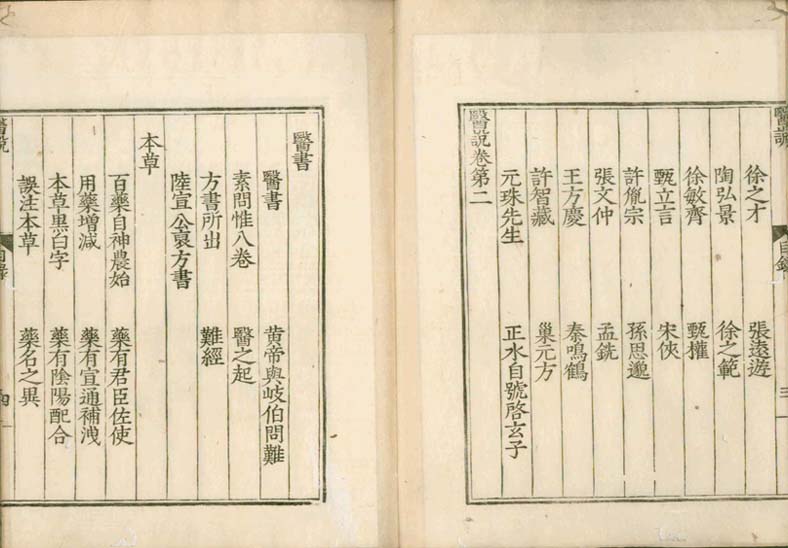 醫說 目錄 三
徐之才 張遠遊
陶弘景 徐之範
徐敏齊 甄權
甄立言 宋俠
許胤宗 孫思邈
張文仲 孟銑
王方慶 秦鳴鶴
許智藏 巢元方
元珠先生 正水自號啓玄子
醫說卷第二
醫書
醫書 黄帝與岐伯問難
素問惟八卷 醫之起
方書所出 難經
陸宣公裒方書
本草
百藥自神農始 藥有君臣佐使
用藥增減 藥有宣通補洩
本草黒白字 藥有陰陽配合
誤注本草 藥名之異
醫說 目錄 四